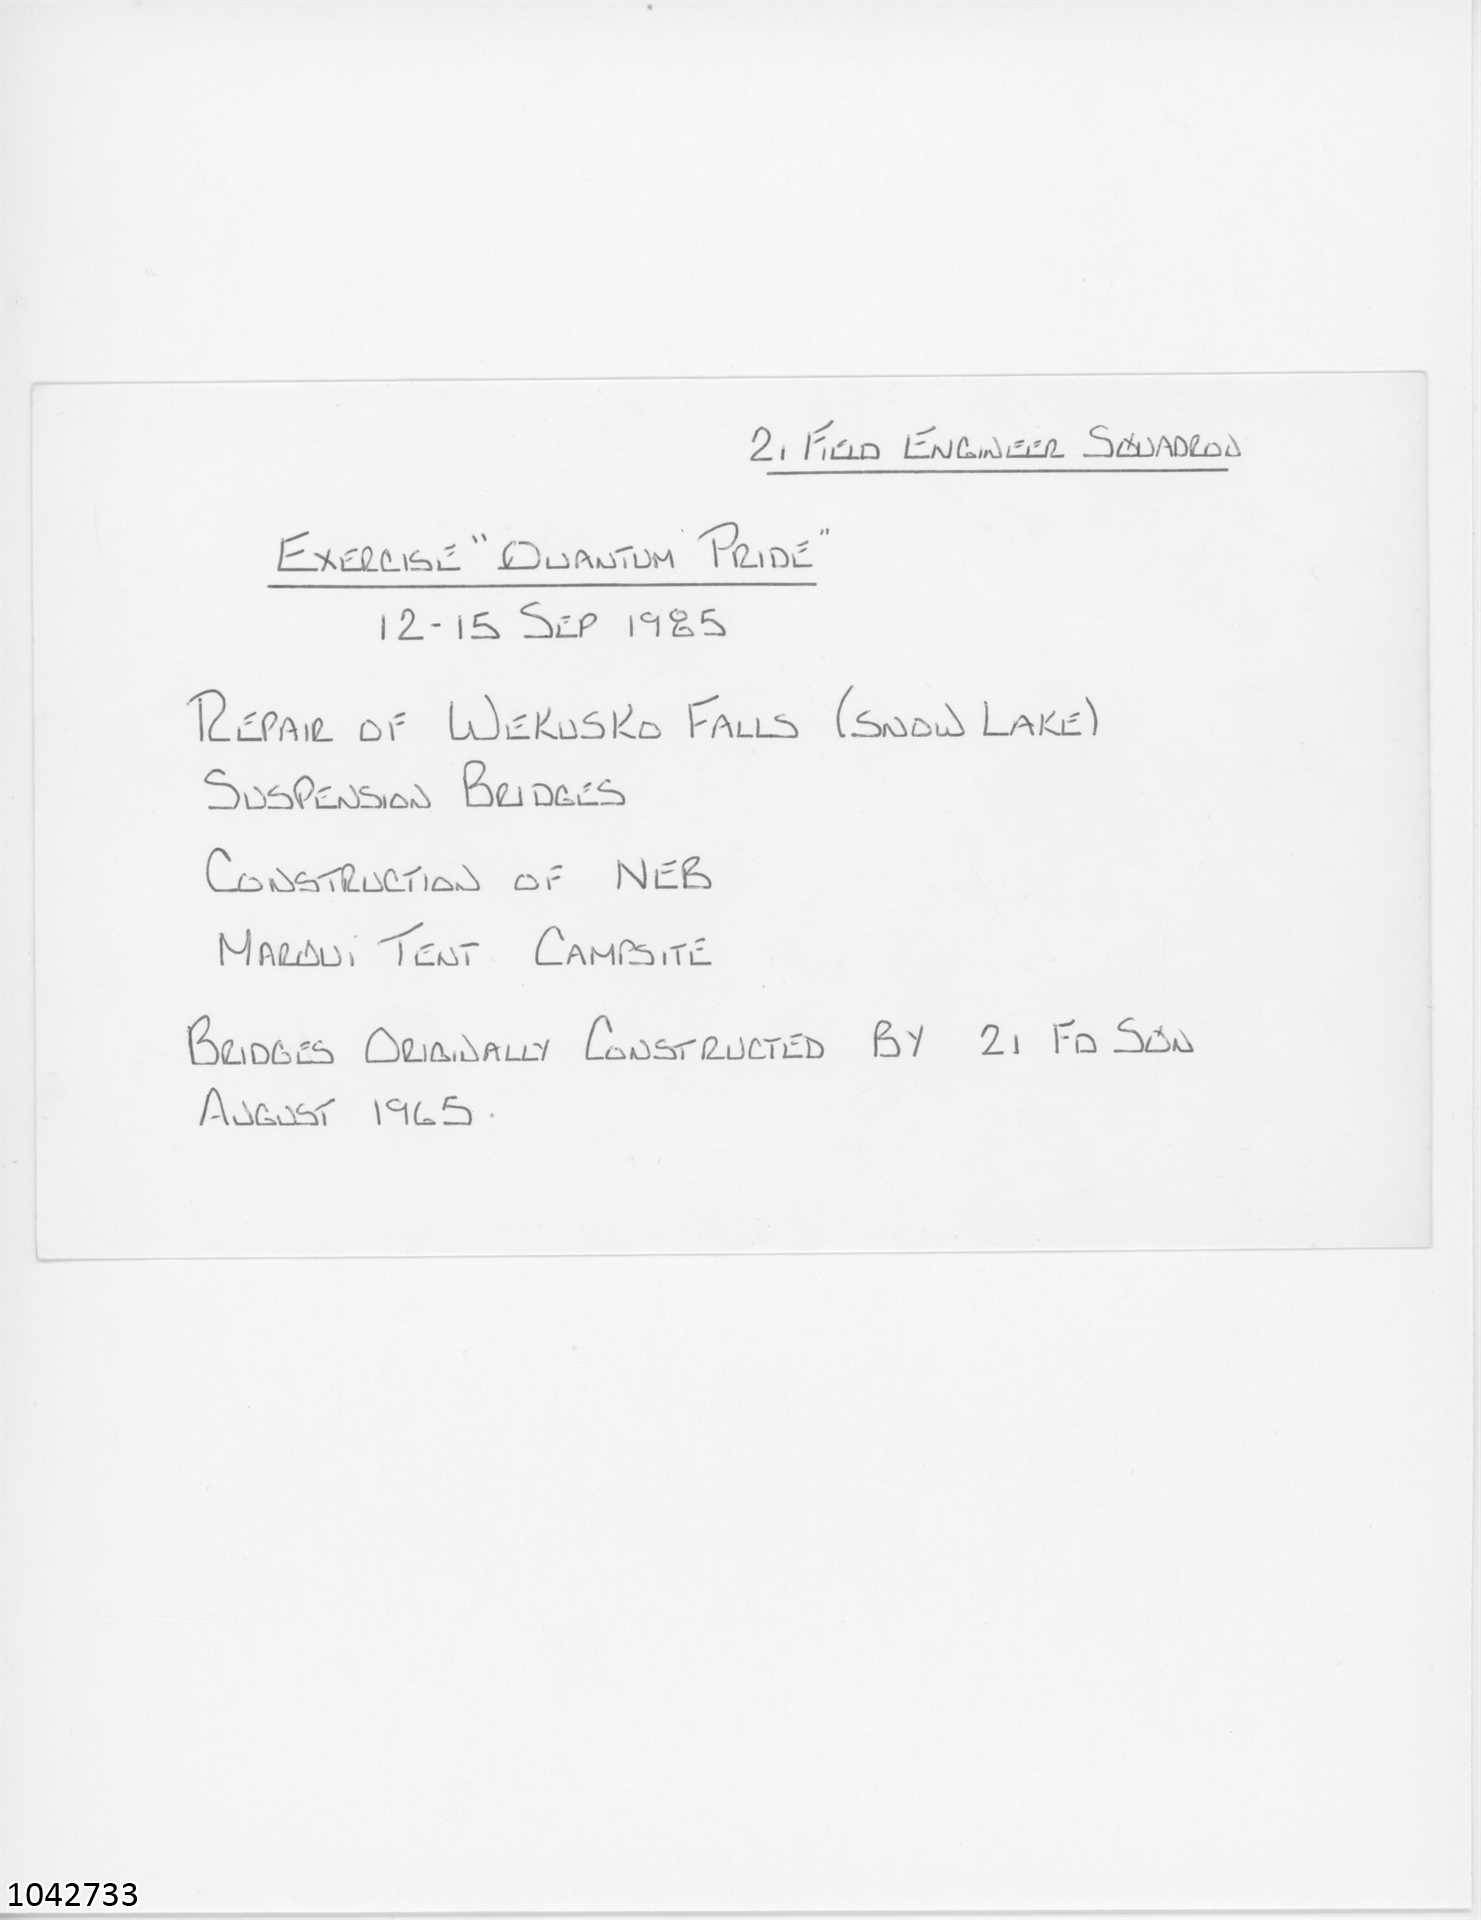 21 FIELD ENGINEER SQUADRON
EXERCISE "QUANTUM PRIDE"
12-15 SEP 1985
REPAIR OF WEKUSKO FALLS (SNOW LAKE)
SUSPENSION BRIDGES
CONSTRUCTION OF NEB
MARQUI TENT CAMPSITE
BRIDGES ORIGINALLY CONSTRUCTED BY 21 FD SQN
AUGUST 1965.
1042733